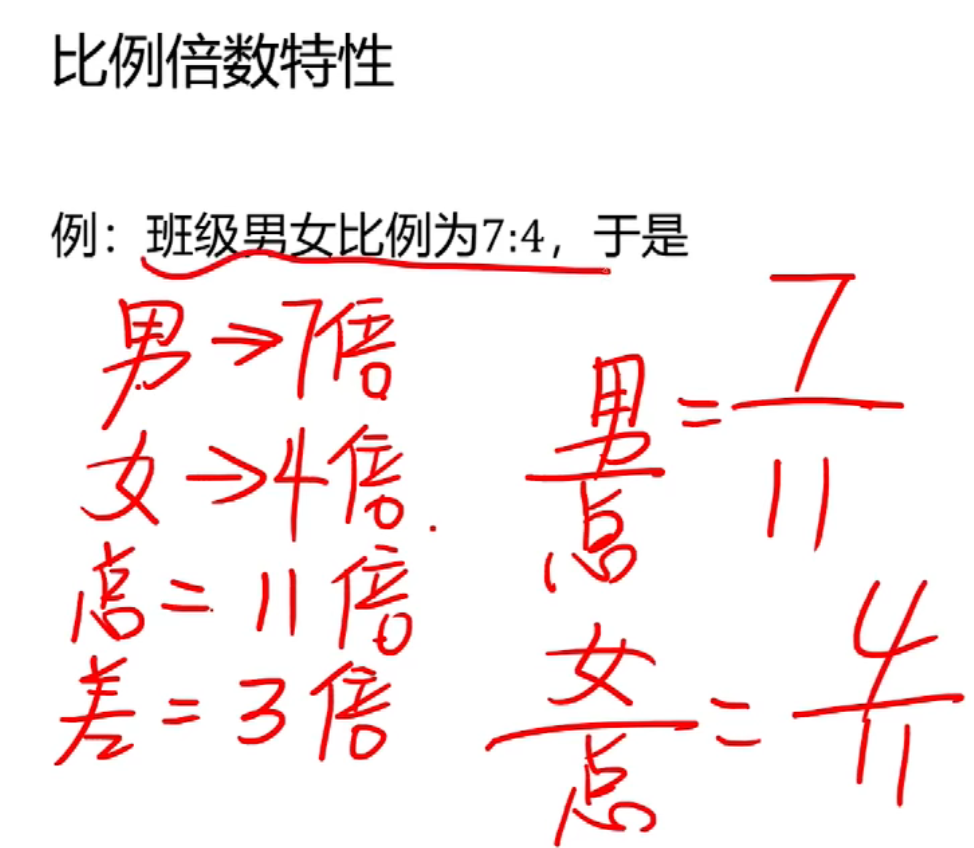 比例倍数特性
例：班级男女比例为7:4，于是
男→7倍
女→4倍.
总=11倍
差=3倍
男/总=7/11
女/总=4/11